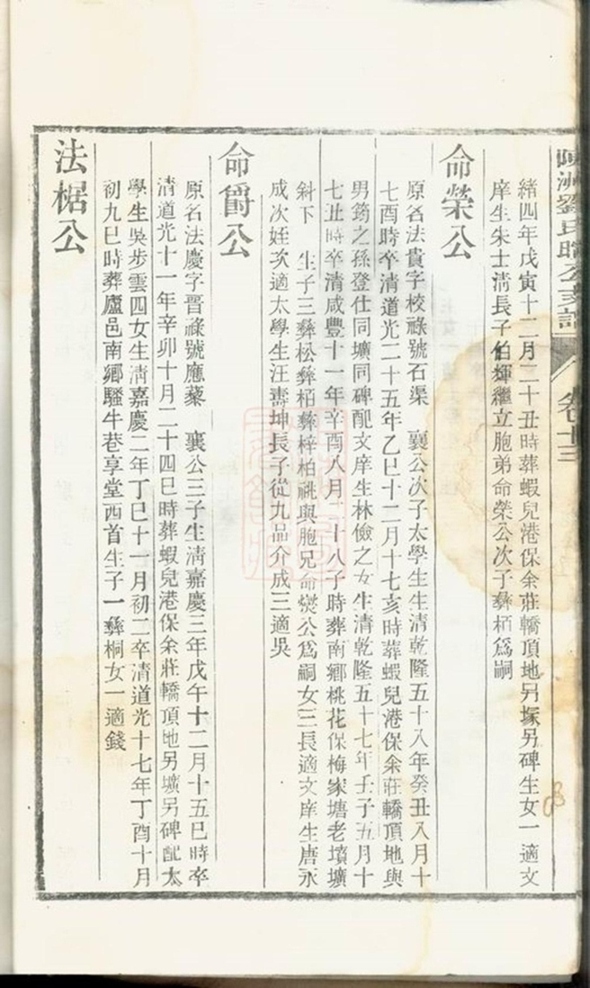 陳洲劉氏聃公支譜 卷十三
緒四年戊寅十二月二十丑時葬蝦兒港保余莊轎頂地另塚另碑生女一適文
庠生朱士清長子伯輝繼立胞弟命榮公次子彝栢爲嗣
命榮公
原名法貴字校祿號石渠 襄公次子太學生生清乾隆五十八年癸丑八月十
七酉時卒清道光二十五年乙巳十二月十七亥時葬蝦兒港保余莊轎頂地與
男筠之孫登仕同壙同碑配文庠生林儉之女生清乾隆五十七年壬子五月十
七丑時卒清咸豐十一年辛酉八月 十八子時葬南鄉桃花保梅家塘老墳壙
斜下 生子三彝松彝栢彝梓柏祧與胞兄命爕公爲嗣女三長適文庠生唐永
成次姪次適太學生汪壽坤長子從九品介成三適吳
命爵公
原名法慶字晋祿號應蘂 襄公三子生清嘉慶三年戊午十二月十五巳時卒
清道光十一年辛卯十月二十四巳時葬蝦兒港保余莊轎頂地另壙另碑配太
學生吳步雲四女生清嘉慶二年丁巳十一月初二卒清道光十七年丁酉十月
初九巳時葬廬邑南鄉騷牛巷享堂西首生子一彝桐女一適錢
法椐公